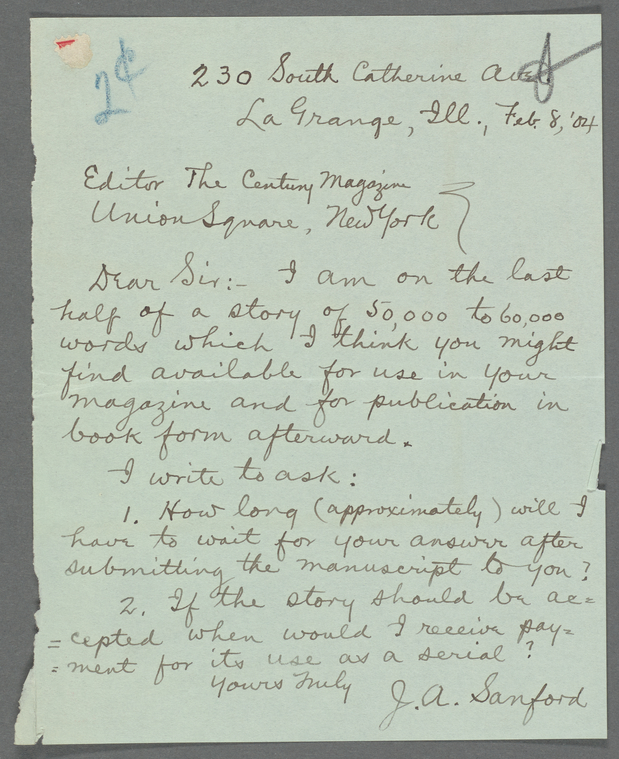 2¢
230 South Catherine Ave
La Grange, Ill., Feb. 8, '04
Editor The Century Magazine
Union Square, New York
Dear Sir:- I am on the last
half of a story of 50,000 to 60,000
words which I think you might
find available for use in your
magazine and for publication in
book form afterward.
I write to ask:
1. How long (approximately) will I
have to wait for your answer after
submitting the manuscript to you?
2. If the story should be ac=
=cepted when would I receive pay=
=ment for its use as a serial?
Yours truly
J. A. Sanford